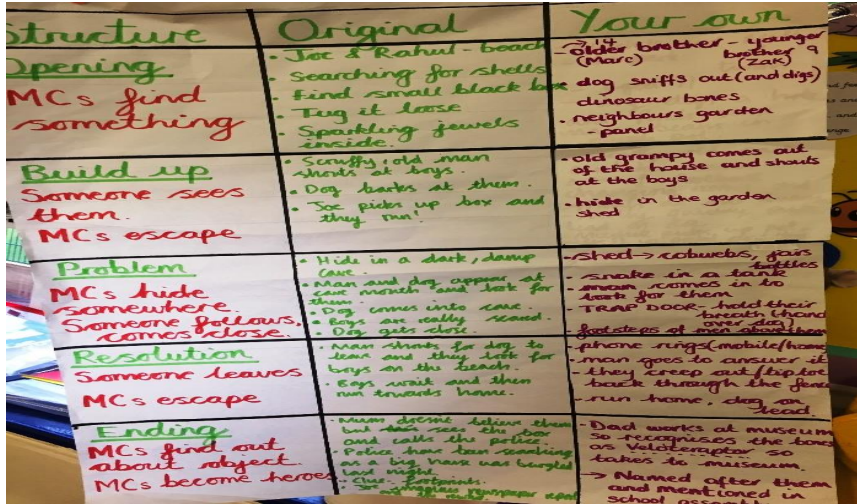 Structure
Original
Your own
Opening
MCs find
something
• Joe & Rahul - beach
• Searching for shells
• Find small black box
• Tug it loose
• Sparkling jewels
inside.
14
- older brother - younger
(Marc) brother 9
(Zak)
• dog sniffs out (and digs)
dinosaur bones
• neighbours garden
- panel
Build up
Someone sees
them.
MCs escape
• Scruffy, old man
shouts at boys.
• Dog barks at them.
• Joe picks up box and
they run!
• old grampy comes out
of the house and shouts
at the boys
• hide in the garden
shed
Problem
MCs hide
somewhere.
Someone follows,
comes close.
• Hide in a dark, damp
cave.
• Man and dog appear at
cave mouth and look for
them.
• Dog comes into cave.
• Boys are really scared.
Dog gets close.
- shed → cobwebs, jars
bottles
- snake in a tank
- man comes in to
look for them
- TRAP DOOR - hold their
breath (hand
over dog)
- footsteps of man above them
Resolution
Someone leaves
MCs escape
• Man shouts for dog to
leave and they look for
boys on the beach.
• Boys wait and then
run towards home.
- phone rings (mobile/home)
- man goes to answer it
- they creep out/tiptoe
back through the fence
- run home, dog on
lead.
Ending
MCs find out
about object.
MCs become heroes
• Mum doesn't believe them
but sees the box
and calls the police.
• Police have been searching
as a big house was burgled
last night.
• Clue - footprints.
newspaper
- Dad works at museum
so recognises the bones
as Velociraptor so
takes to museum.
→ Named after them
and mentioned in
school assembly